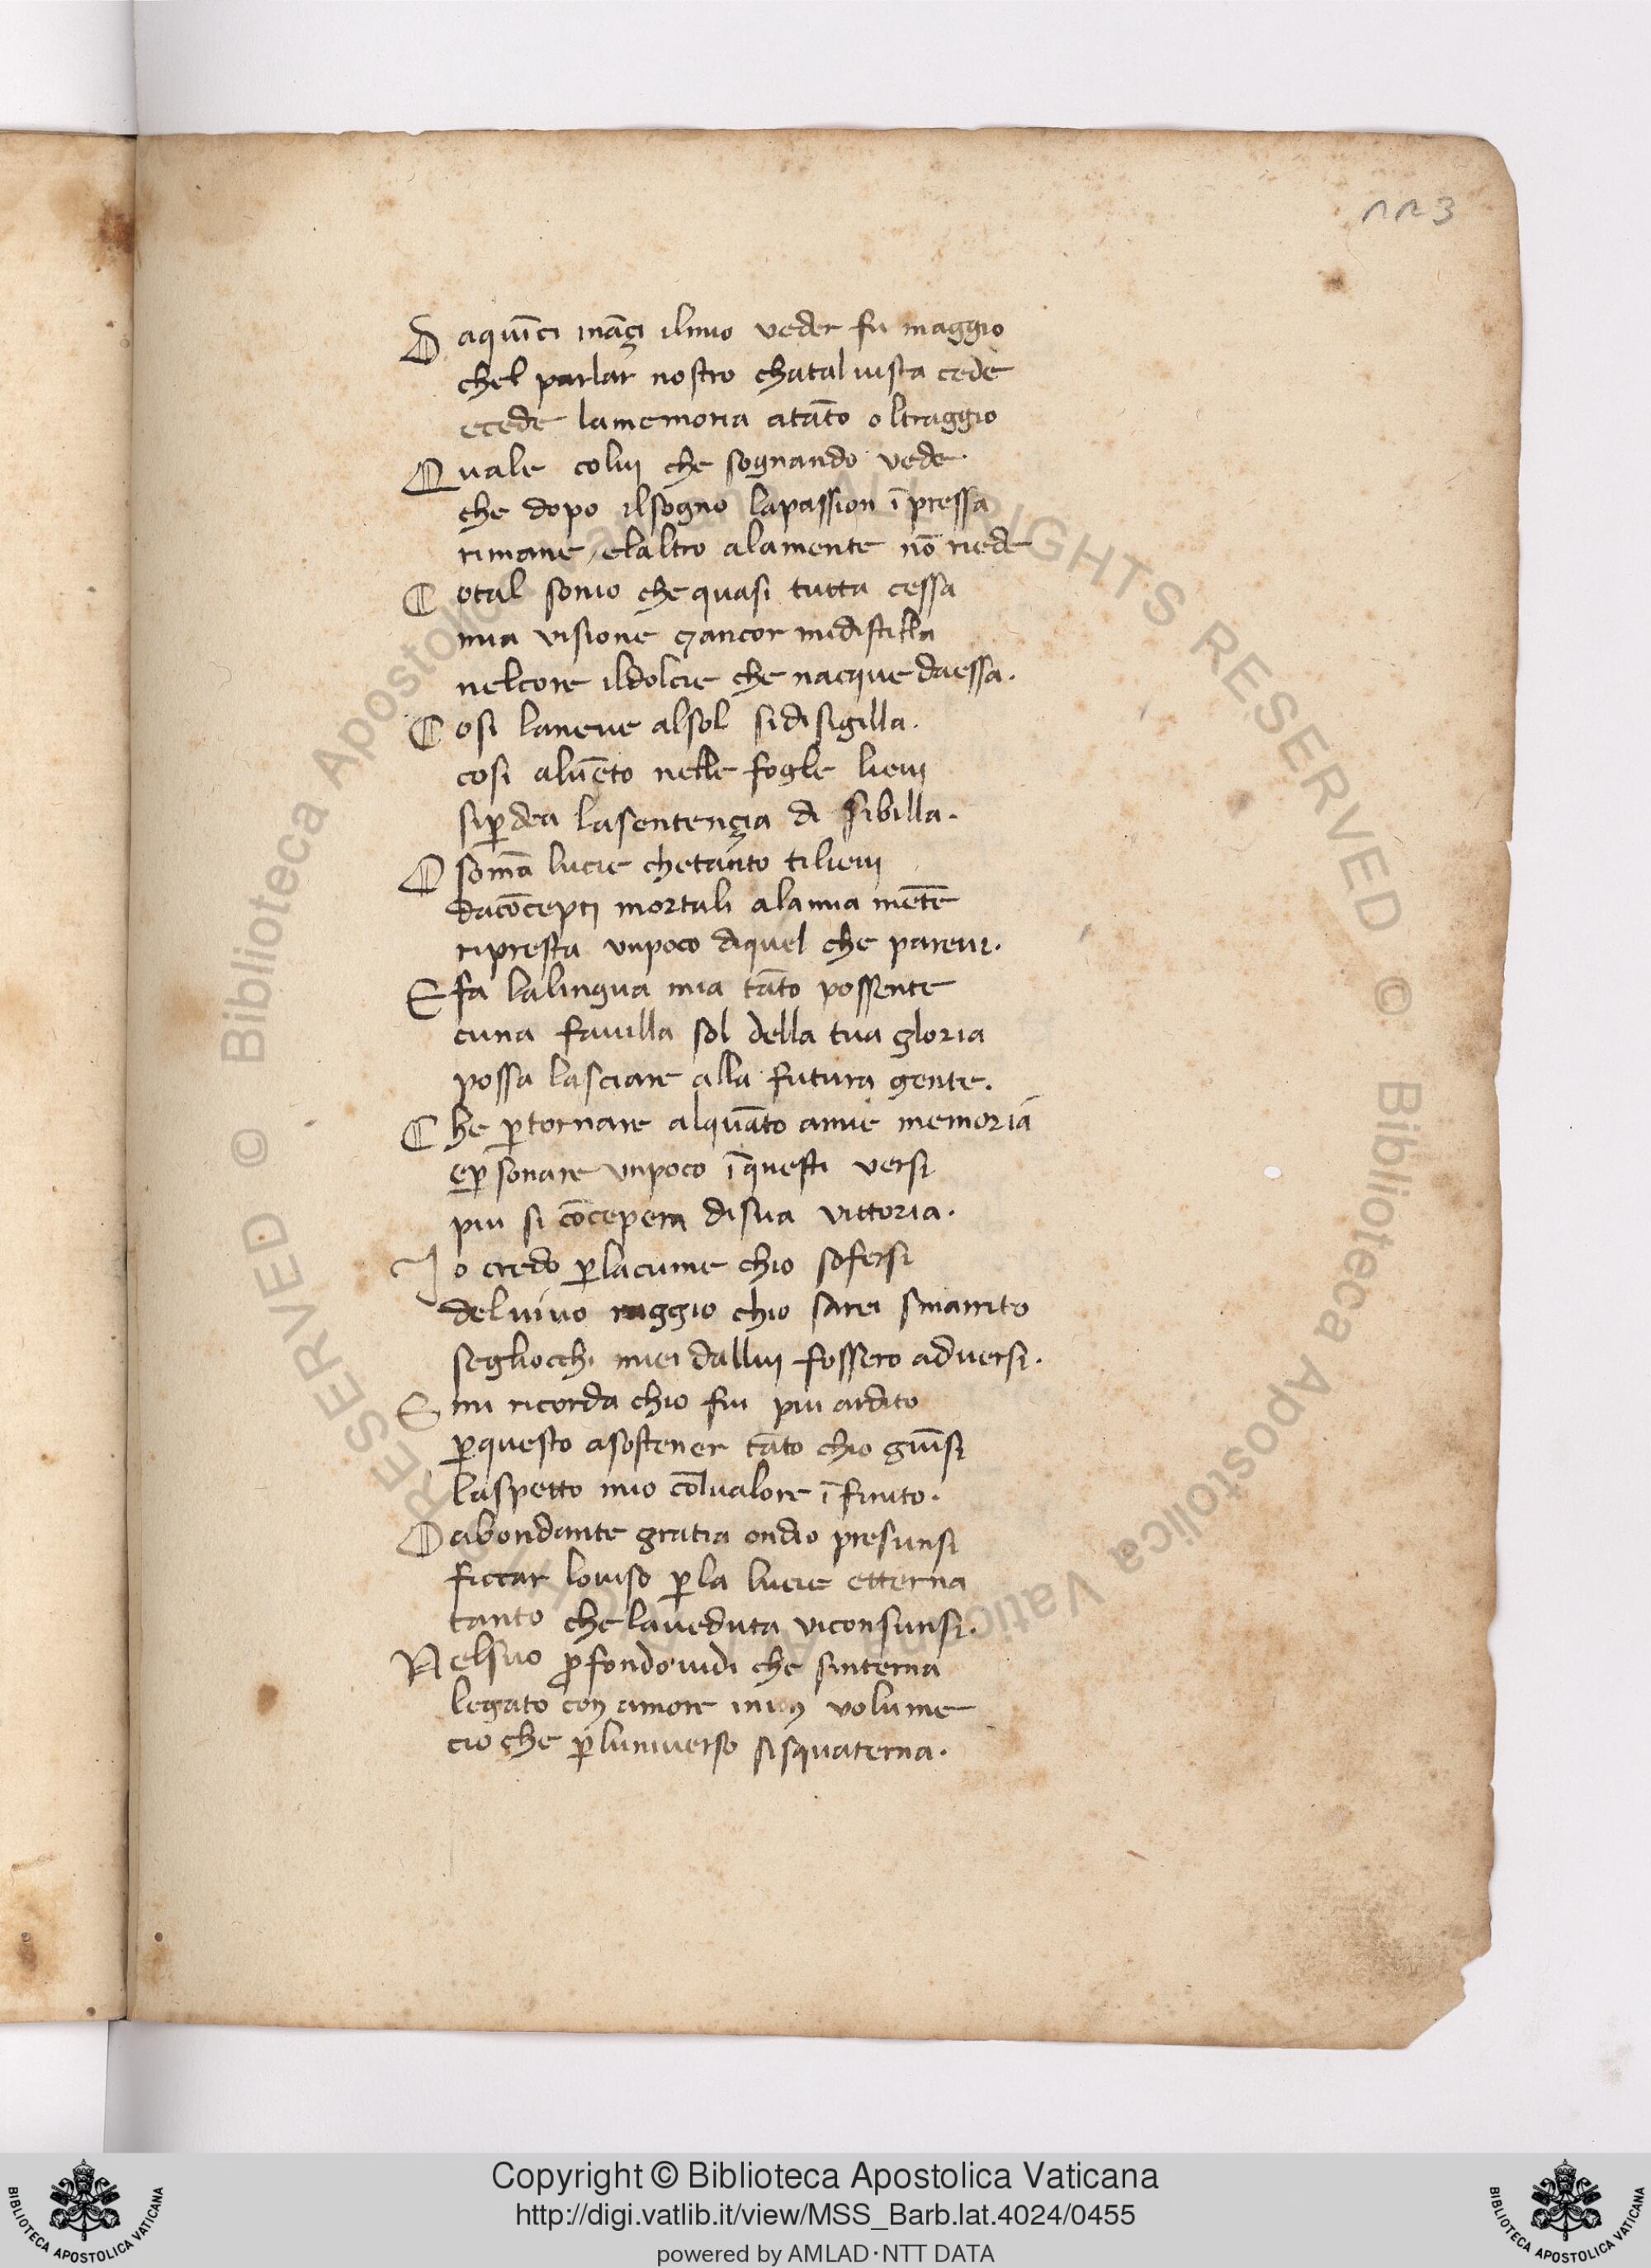 223
Daquīci ināçi ilmio veder fu maggio
chel parlar nostro chatal uista cede
ecede lamemoria atāto oltraggio
Quale colui che sognando vede.
che dopo ilsogno lapassion īpressa
rimane, elaltro alamente nō riede
Cotal sonio che quasi tutta cessa
mia visione ⁊ancor midistilla
nelcore ildolcie che nacque daessa.
Cosi laneue alsol sidisigilla.
cosi aluēto nelle fogle lieui
siꝑdea lasentençia di sibilla.
O som̄a lucie chetanto tilieui
dacōcepti mortali alamia mēte
ripresta vnpoco diquel che pareui.
E fa lalingua mia tāto possente
cuna fauilla sol della tua gloria
possa lasciare alla futura gente.
Che ꝑtornare alquāto amie memoria
eꝑ sonare vnpoco īquesti versi
piu si cōcepera disua vittoria.
Io credo ꝑlacume chio sofersi
deluiuo raggio chio sarei smarrito
segliocchi miei dallui fossero aduersi.
E mi ricorda chio fui piu ardito
ꝑquesto asostener tāto chio giūsi
laspetto mio cōlualore īfinito.
O abondante gratia ondio presunsi
ficcar louiso ꝑla lucie etterna
tanto che laueduta viconsunsi.
Nelsuo ꝓfondo uidi che sinterna
legato con amore inun volume
cio che ꝑluniuerso sisquaterna.
RESERVED © Biblioteca Apostolica Vaticana ALL RIGHTS RESERVED © Biblioteca Apostolica Vaticana
Copyright © Biblioteca Apostolica Vaticana
http://digi.vatlib.it/view/MSS_Barb.lat.4024/0455
powered by AMLAD·NTT DATA
BIBLIOTECA APOSTOLICA VATICANA
BIBLIOTECA APOSTOLICA VATICANA